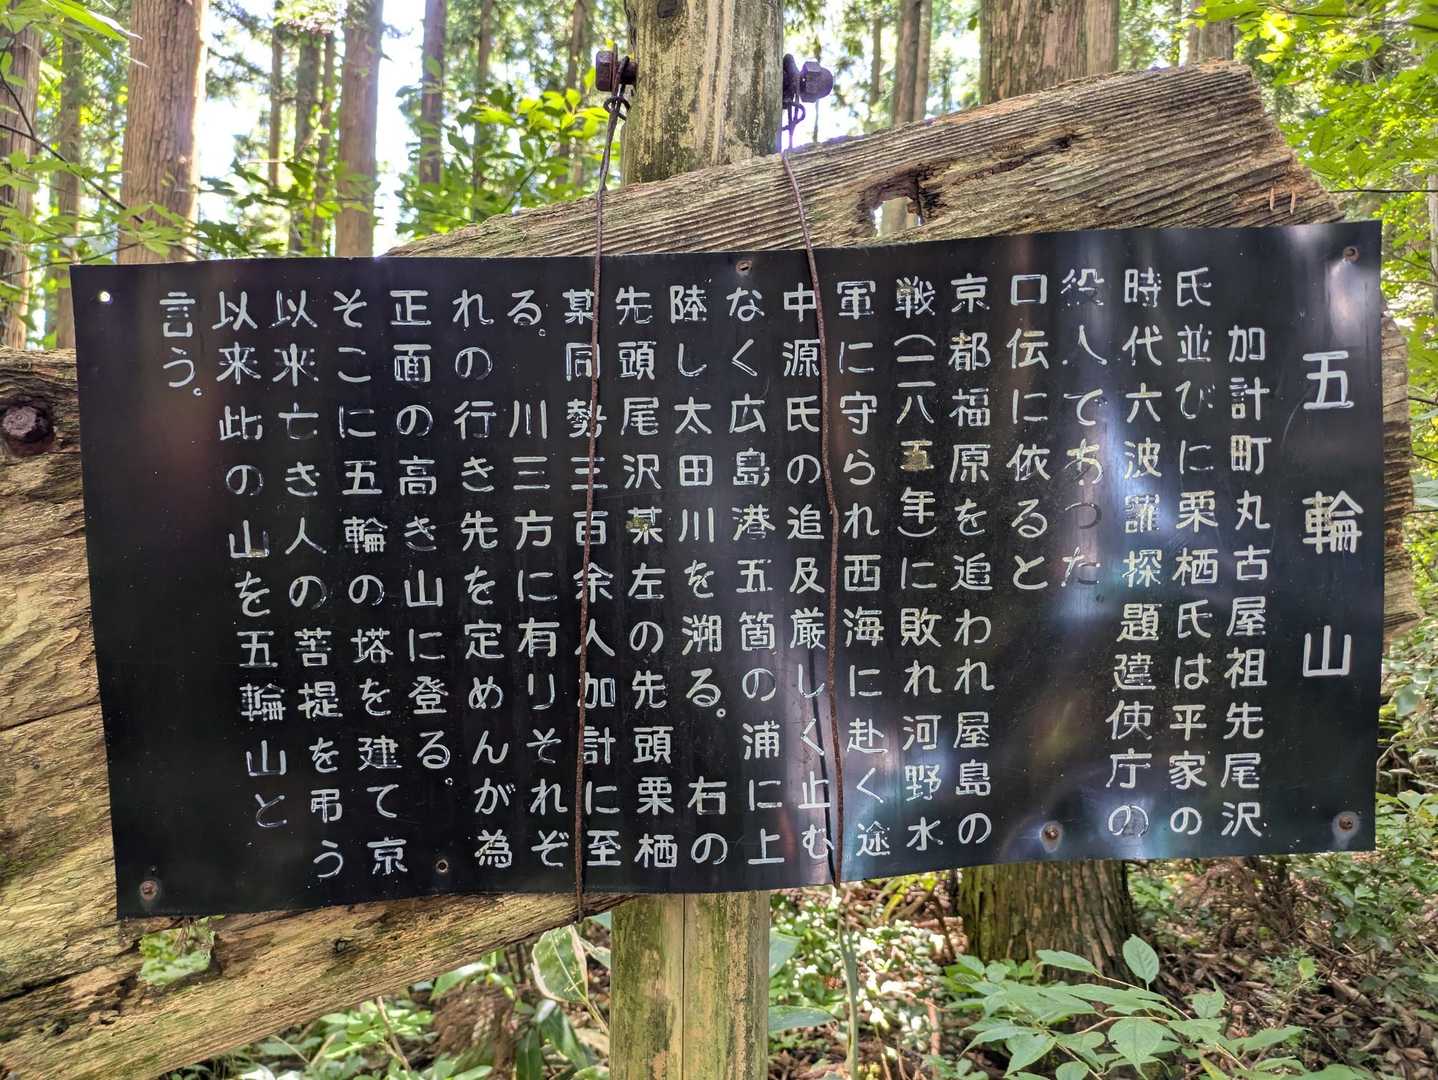 五輪山
加計町丸古屋祖先尾沢
氏並びに栗栖氏は平家の
時代六波羅探題違使庁の
役人であった
口伝に依ると
京都福原を追われ屋島の
戦(一一八五年)に敗れ河野水
軍に守られ西海に赴く途
中源氏の追及厳しく止む
なく広島港五箇の浦に上
陸し太田川を溯る。右の
先頭尾沢某左の先頭栗栖
某同勢三百余人加計に至
る。川三方に有りそれぞ
れの行き先を定めんが為
正面の高き山に登る。
そこに五輪の塔を建て京
以来亡き人の菩提を弔う
以来此の山を五輪山と
言う。